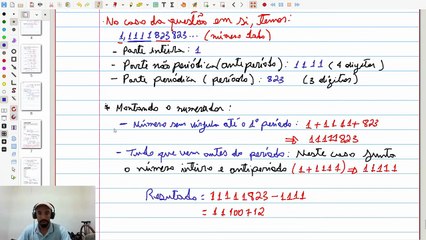 - No caso da questão em si, temos:
1,1111823823... (número dado)
- Parte inteira: 1
- Parte não periódica (antiperíodo): 1111 (4 dígitos)
- Parte periódica (período): 823 (3 dígitos)
* Montando o numerador:
- Número sem vírgula até o 1º período: 1+1111+823
⇒ 11111823
- Tudo que vem antes do período: Neste caso junta
o número inteiro e antiperíodo (1+1111) ⇒ 11111
Resultado = 11111823 - 11111
= 11100712